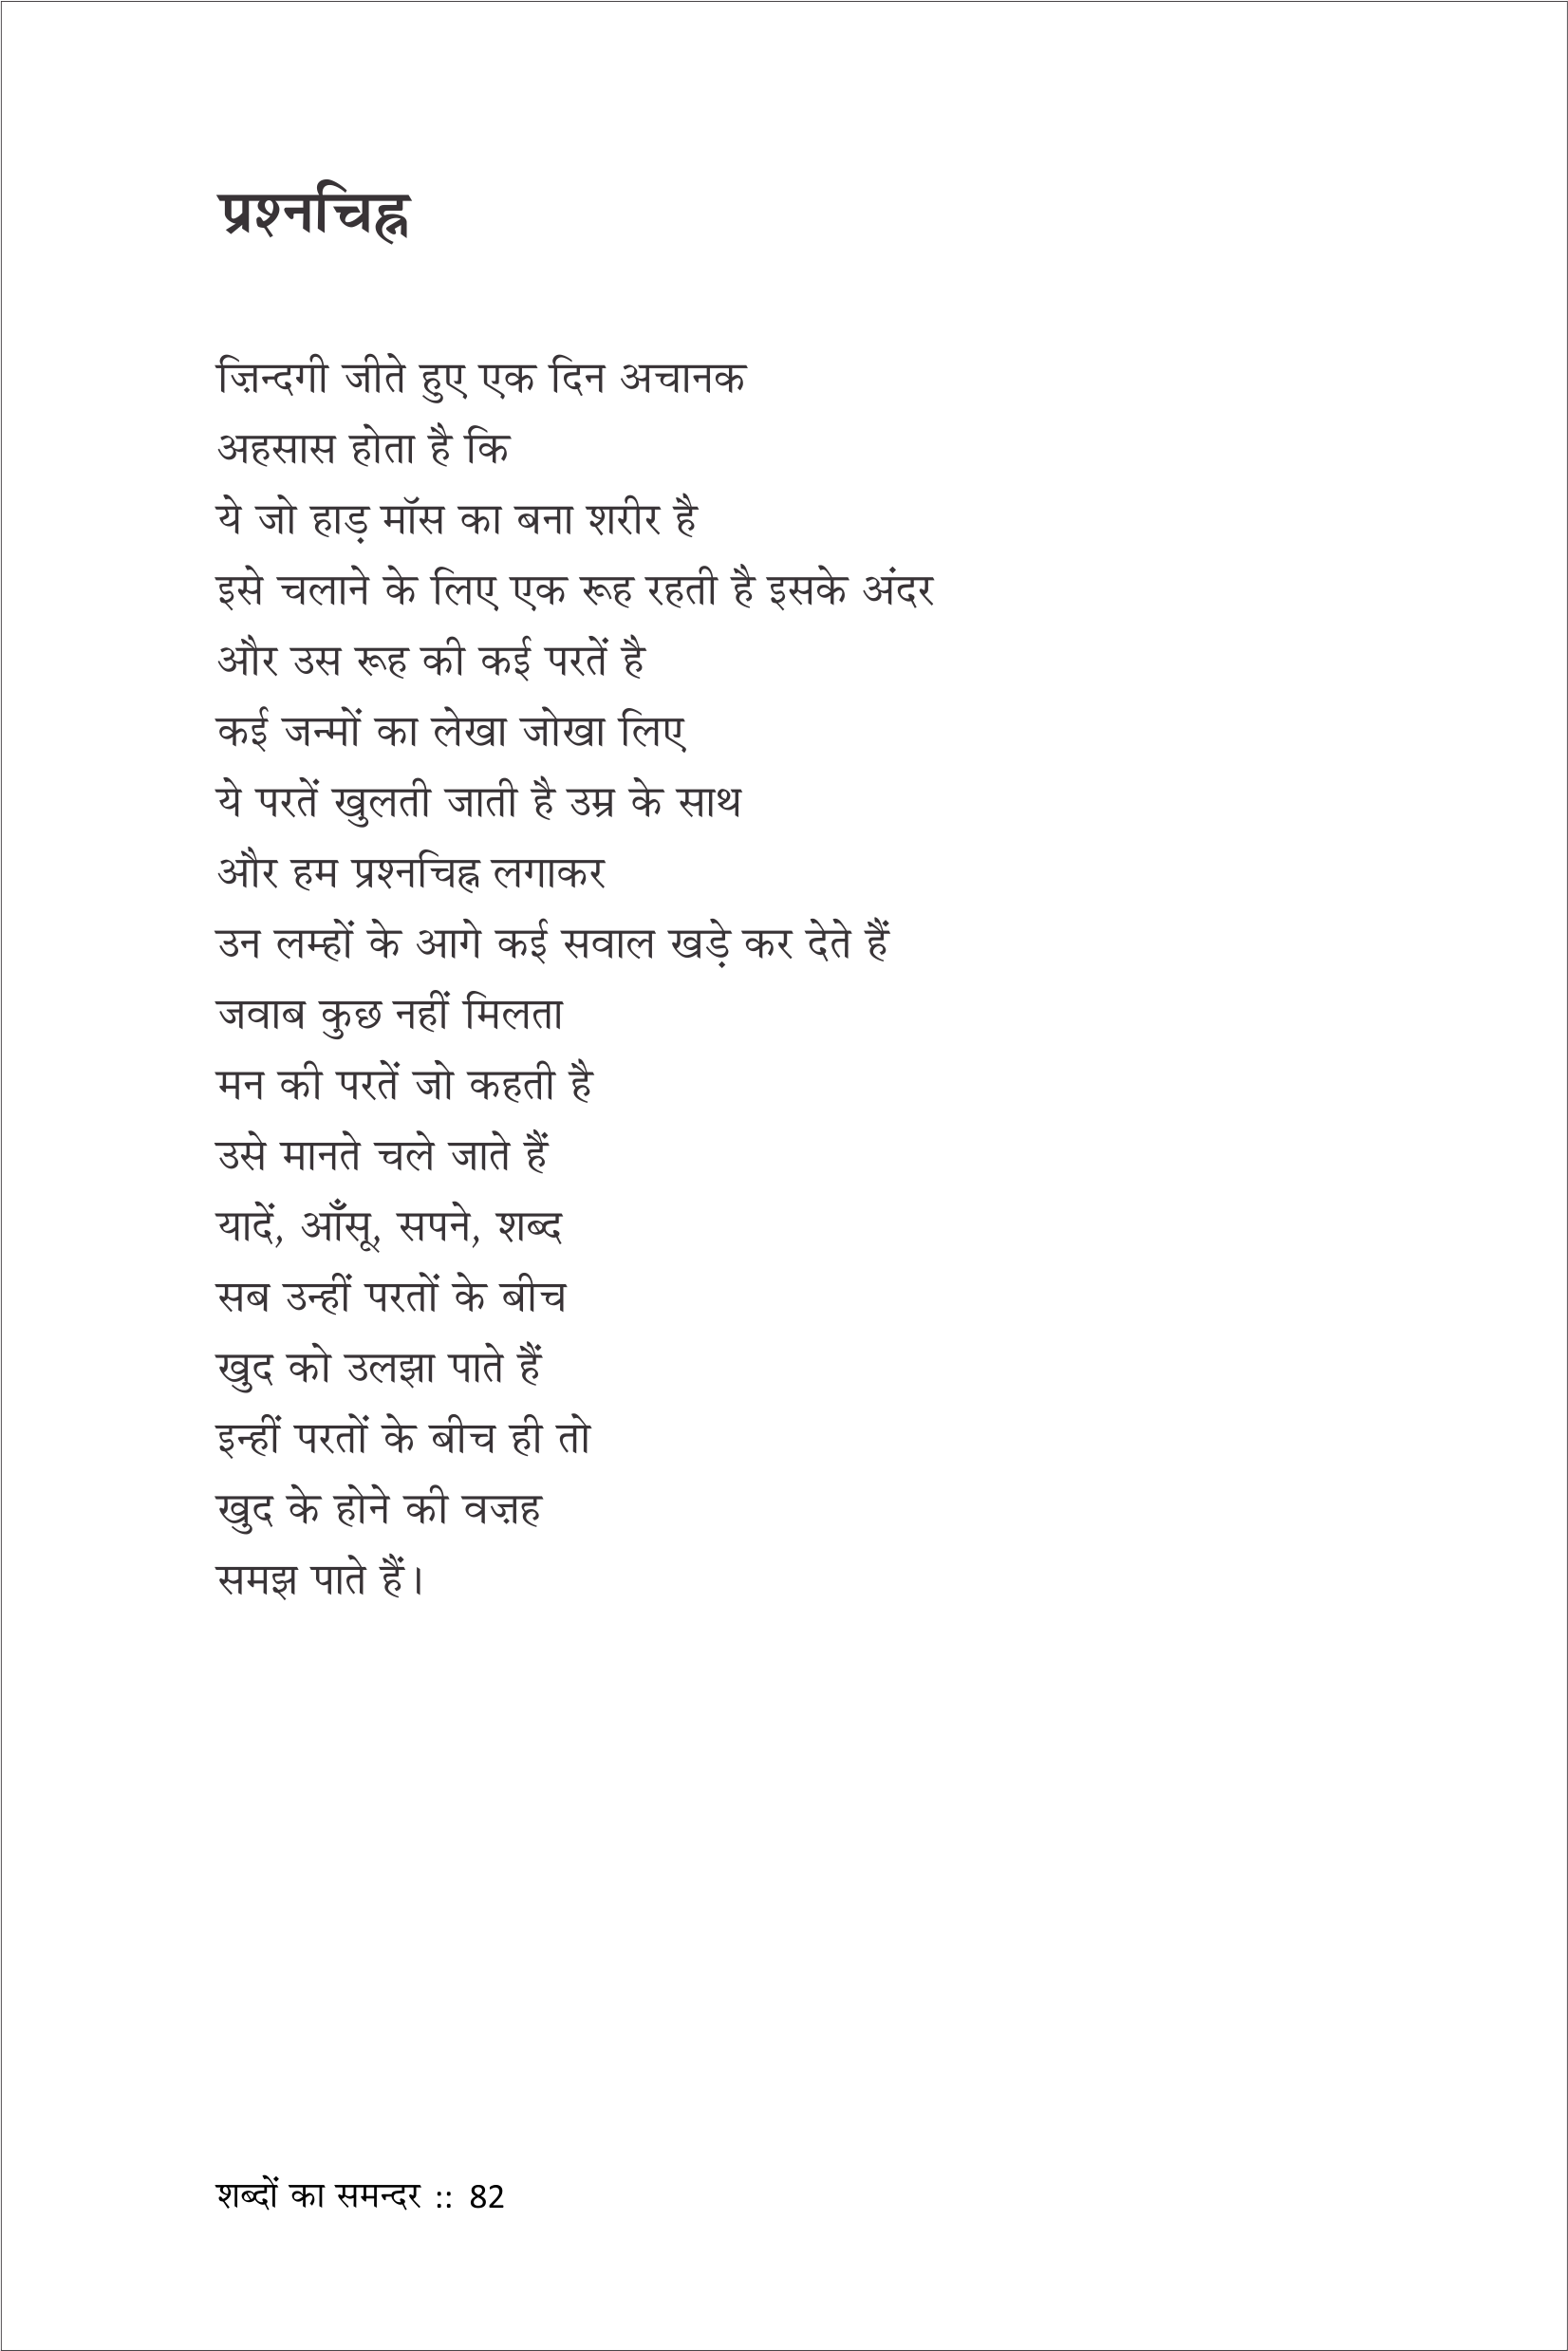 प्रश्नचिह्न
ज़िन्दगी जीते हुए एक दिन अचानक
अहसास होता है कि
ये जो हाड़ मॉस का बना शरीर है
इसे चलाने के लिए एक रूह रहती है इसके अंदर
और उस रूह की कई परतें है
कई जन्मों का लेखा जोखा लिए
ये परतें खुलती जाती है उम्र के साथ
और हम प्रश्नचिह्न लगाकर
उन लम्हों के आगे कई सवाल खड़े कर देते हैं
जवाब कुछ नहीं मिलता
मन की परतें जो कहती है
उसे मानते चले जाते हैं
यादें, आँसू, सपने, शब्द
सब उन्हीं परतों के बीच
खुद को उलझा पाते हैं
इन्हीं परतों के बीच ही तो
खुद के होने की वज़ह
समझ पाते हैं।
शब्दों का समन्दर :: 82